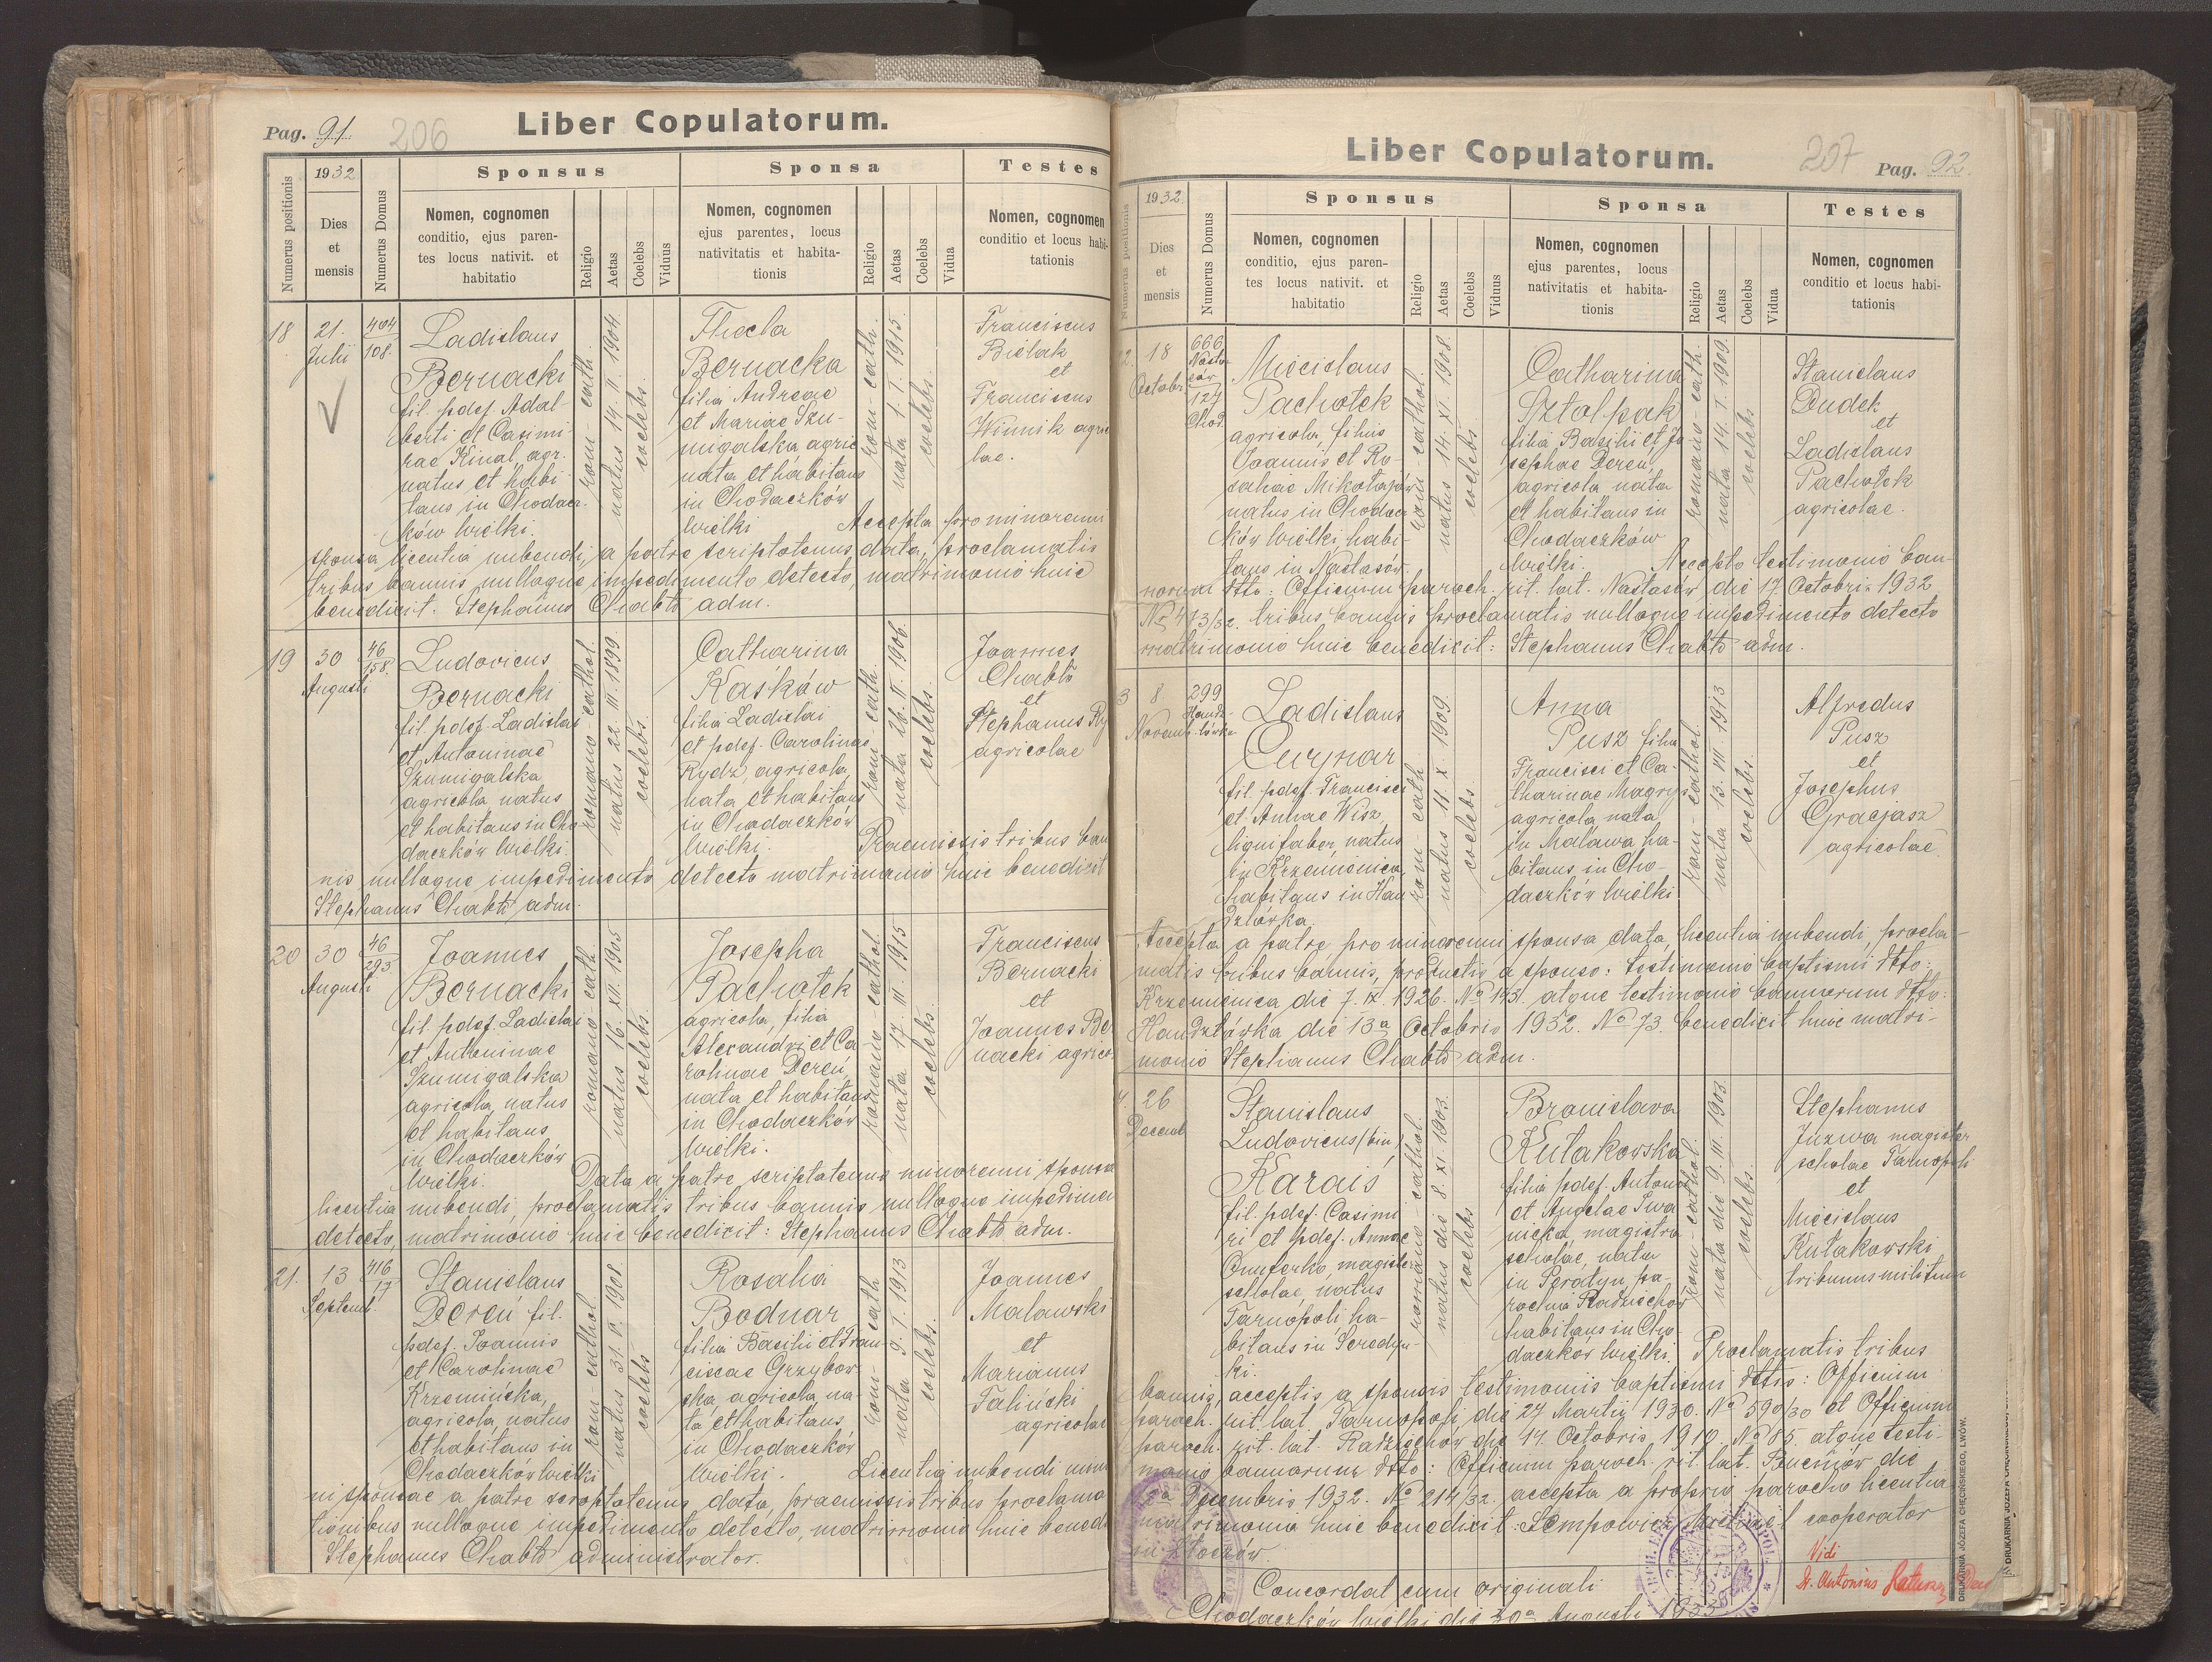 Pag. 91.
206
Liber Copulatorum.
Numerus positionis
1932
Dies
et
mensis
Numerus Domus
Sponsus
Nomen, cognomen
conditio, ejus paren-
tes locus nativit. et
habitatio
Religio
Aetas
Coelebs
Viduus
Sponsa
Nomen, cognomen
ejus parentes, locus
nativitatis et habita-
tionis
Religio
Aetas
Coelebs
Vidua
Testes
Nomen, cognomen
conditio et locus habi-
tationis
18
21.
Julii
404
108.
Ladislaus
Bernacki
fil. pdef. Adal-
berti et Casimi-
rae Kinal, agr.
natus et habi-
tans in Chodacz-
ków wielki.
rom - cath.
natus 14. II. 1904.
coelebs.
Thecla
Bernacka
filia Andreae
et Mariae Szu-
migalska, agric.
nata et habitans
in Chodaczków
wielki
rom - cath.
nata 1. I. 1915.
coelebs.
Franciscus
Bielak
et
Franciscus
Winnik agri
lae.
Accepta pro minorenni
sponsa licentia nubendi, a patre scriptotenus data, proclamatis
tribus bannis nulloque impedimento detecto, matrimonio huic
benedicit. Stephanus Chabło adm.
19
30
Augusti
46
158.
Ludovicus
Bernacki
fil. pdef. Ladislai
et Antoninae
Szumigalska
agricola, natus
et habitans in Cho
daczków wielki
romano - cathol.
natus 22. III. 1899.
coelebs.
Catharina
Kasków
filia Ladislai
et pdef. Carolinae
Rydz, agricola,
nata et habitans
in Chodaczków
wielki.
rom - cath.
nata 26. II. 1906.
coelebs.
Joannes
Chabło
et
Stephanus Ry
agricolae
Praemissis tribus ban
nis nulloque impedimento detecto matrimonio huic benedicit
Stephanus Chabło adm.
20
30
Augusti
46
293.
Joannes
Bernacki
fil. pdef. Ladislai
et Antoninae
Szumigalska
agricola, natus
et habitans
in Chodaczków
wielki.
romano cath.
natus 16. XII. 1905
coelebs.
Josepha
Pachołek
agricola, filia
Alexandri et Ca-
rolinae Dereń,
nata et habitans
in Chodaczków
wielki.
romano - cathol.
nata 17. III. 1915
coelebs
Franciscus
Bernacki
et
Joannes Be
nacki agrico
Data a patre scriptotenus minorenni sponsa
licentia nubendi, proclamatis tribus bannis nulloque impedimen
detecto, matrimonio huic benedicit: Stephanus Chabło adm.
21.
13
Septemb.
416
17
Stanislaus
Dereń fil.
pdef. Joannis
et Carolinae
Krzemińska,
agricola, natus
et habitans in
Chodaczków wielki
rom - cathol.
natus 31. V. 1908
coelebs
Rosalia
Bodnar
filia Basilii et Fran-
ciscae Grzybow-
ska, agricola, na-
ta et habitans
in Chodaczków
wielki.
rom - cath
nata 9. I. 1913
coelebs.
Joannes
Malawski
et
Marianus
Taliński
agricolae
Licentia nubendi mino
ni sponsae a patre scriptotenus data, praemissis tribus proclama
tionibus nulloque impedimento detecto, matrimonio huic bened
Stephanus Chabło administrator.
Liber Copulatorum.
207
Pag. 92.
Numerus positionis
1932
Dies
et
mensis
Numerus Domus
Sponsus
Nomen, cognomen
conditio, ejus paren-
tes locus nativit. et
habitatio
Religio
Aetas
Coelebs
Viduus
Sponsa
Nomen, cognomen
ejus parentes, locus
nativitatis et habita-
tionis
Religio
Aetas
Coelebs
Vidua
Testes
Nomen, cognomen
conditio et locus habi-
tationis
2.
18
Octobr.
666
Nasta
sów
127
Chod.
Miecislaus
Pachołek
agricola, filius
Joannis et Ro-
saliae Mikołajów
natus in Chodacz
ków wielki, habi-
tans in Nastasów.
rom - cathol.
natus 14. XI. 1908.
coelebs
Catharina
Sztolpak
filia Basilii et Jo
sephae Dereń,
agricola nata
et habitans in
Chodaczków
wielki.
romano - cath.
nata 14. I. 1909.
coelebs
Stanislaus
Dudek
et
Ladislaus
Pachołek
agricolae.
Accepto testimonio ban-
norum dtto: Officium paroch. rit. lat. Nastasów die 17. Octobris 1932
No 473/32. tribus bannis proclamatis nulloque impedimento detecto
matrimonio huic benedicit: Stephanus Chabło adm.
3
8.
Novemb.
299
Handz-
lówka
Ladislaus
Cwynar
fil. pdef. Francisci
et Annae Wisz,
lignifaber, natus
in Krzemienica,
habitans in Han
dzlówka
rom - cath
natus 11. X. 1909.
coelebs
Anna
Pusz filia
Francisci et Ca-
tharinae Magryś
agricola, nata
in Malawa ha-
bitans in Cho-
daczków wielki
rom - cathol.
nata 13. VII. 1913
coelebs
Alfredus
Pusz
et
Josephus
Gracjasz
agricolae
Accepta a patre pro minorenni sponsa data licentia nubendi, procla-
matis tribus bannis, productis a sponso: testimonio baptismi dtto:
Krzemienica die 7. IX. 1926. No 143. atque testimonio bannorum dtto:
Handzlówka die 13a Octobris 1932. No 73. benedicit huic matri-
monio Stephanus Chabło adm.
4.
26
Decemb.
Stanislaus
Ludovicus (bin)
Karais
fil. pdef. Casimi
ri et pdef. Annae
Onuferko, magister
scholae, natus
Tarnopoli ha-
bitans in Seredyn-
ki.
romano - cathol.
natus die 8. XI. 1903.
coelebs
Bronislava
Kułakowska
filia pdef. Antonii
et Angelae Iwa
nicka, magistra
scholae, nata
in Seratyn, pa-
rochia Radziechów
habitans in Cho-
daczków wielki.
rom - cathol.
nata die 9. III. 1903.
coelebs.
Stephanus
Juzwa magister
scholae Tarnopoli
et
Miecislaus
Kułakowski
tribunus militum
Proclamatis tribus
bannis, acceptis a sponsis testimoniis baptismi dttis: Officium
paroch. rit. lat. Tarnopoli die 27 Martii 1930. No 590/30 et Officium
paroch. rit. lat. Radziechów die 14. Octobris 1910 No 85. atque testi-
monio bannorum dtto: Officium paroch. rit. lat. Bucniów die
Decembris 1932. No 214/32. accepta a proprio parocho licentia
matrimonio huic benedicit: Sempowicz cooperator
in Złoczów.
Concordat cum originali
Chodaczków wielki die 30a Augusti 1933
Vidi
Antonius
DRUKARNIA JÓZEFA CHĘCIŃSKIEGO, LWÓW.